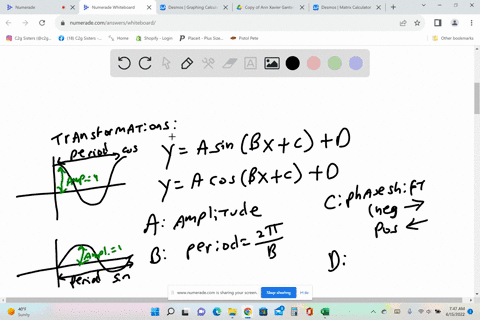 Numerade
Numerade Whiteboard
Desmos | Graphing Calculat
Copy of Ann Xavier Gantert
Desmos | Matrix Calculator
numerade.com/answers/whiteboard/
C2g Sisters (@c2g...
(18) C2g Sisters - Fa...
Home
Shopify - Login
Placeit - Plus Size...
Pistol Pete
Other bookmarks
Transformations:
period cos
Ampl=1
y = A sin (Bx + c) + D
y = A cos (Bx + c) + D
A: Amplitude
B: period = 2π/B
C: phase shift
(neg →
pos ←
D:
Ampl.=1
period sin
www.numerade.com is sharing your screen.
Stop sharing
Hide
40°F
Sunny
7:47 AM
6/15/2022